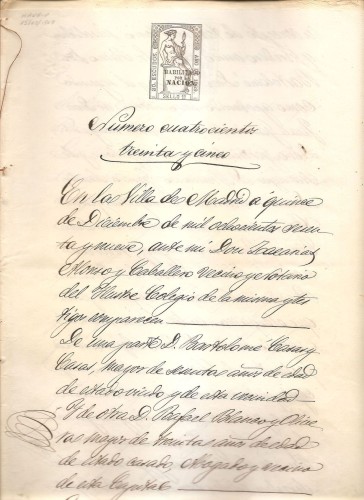 HABILITADO
POR LA
NACION
Numero cuatrocientos
treinta y cinco
En la Villa de Madrid a quince
de Diciembre de mil ochocientos sesen
ta y nueve, ante mi Don Zacarias
Alonso y Caballero Vecino y Notario
del Ilustre Colegio de la misma y tes
tigos comparecen
De una parte D. Bartolomé Casas y
Casas, mayor de sesenta años de edad
de estado viudo, y de esta vecindad
Y de otra D. Rafael Blanco y
mayor de treinta años de edad
de estado casado, Abogado y vecino
de esta Capital